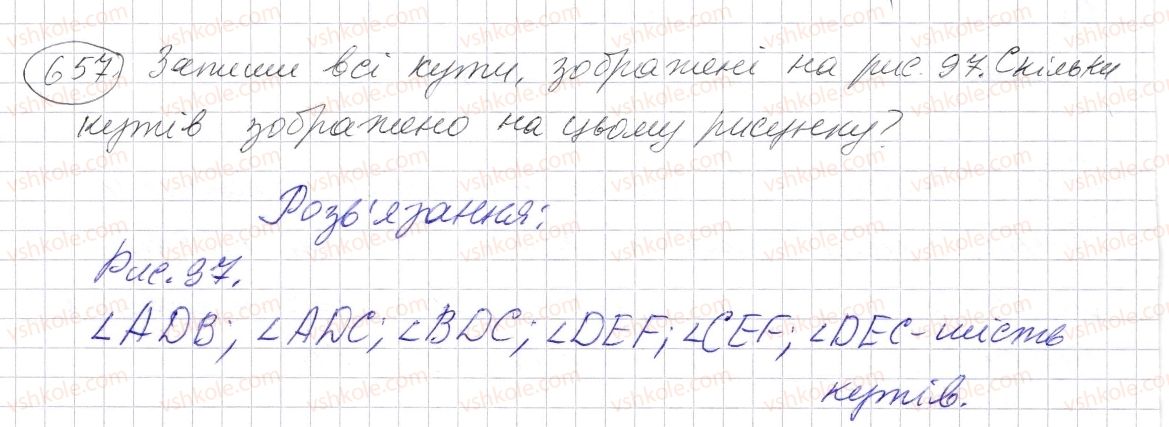 657. Запиши всі кути, зображені на рис. 97. Скільки
кутів зображено на цьому рисунку?
Розв'язання:
Рис. 97.
∠ADB; ∠ADC; ∠BDC; ∠DEF; ∠CEF; ∠DEC - шість
кутів.